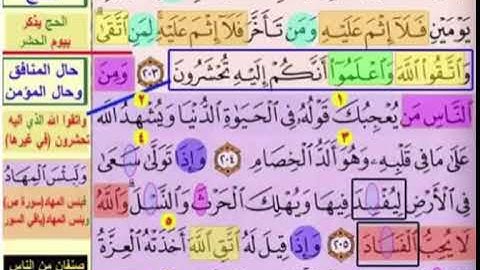 يَوْمَيْنِ فَلَآ إِثْمَ عَلَيْهِ وَمَن تَأَخَّرَ فَلَآ إِثْمَ عَلَيْهِ لِمَنِ اتَّقَىٰ
وَاتَّقُوا اللَّهَ وَاعْلَمُوٓا أَنَّكُمْ إِلَيْهِ تُحْشَرُونَ ۝٢٠٣ وَمِنَ
النَّاسِ مَن يُعْجِبُكَ قَوْلُهُ فِي الْحَيَوٰةِ الدُّنْيَا وَيُشْهِدُ اللَّهَ
عَلَىٰ مَا فِي قَلْبِهِ وَهُوَ أَلَدُّ الْخِصَامِ ۝٢٠٤ وَإِذَا تَوَلَّىٰ سَعَىٰ
فِي الْأَرْضِ لِيُفْسِدَ فِيهَا وَيُهْلِكَ الْحَرْثَ وَالنَّسْلَ وَاللَّهُ
لَا يُحِبُّ الْفَسَادَ ۝٢٠٥ وَإِذَا قِيلَ لَهُ اتَّقِ اللَّهَ أَخَذَتْهُ الْعِزَّةُ
١ ٢ ٣ ٤ ٥
الحج يذكر
بيوم الحشر
حال المنافق
وحال المؤمن
واتقوا الله الذي اليه
تحشرون (في غيرها)
وَلَبِئْسَ الْمِهَادُ
فبئس المهاد (سورة ص)
وبئس المهاد (باقي السور)
صنفان من الناس